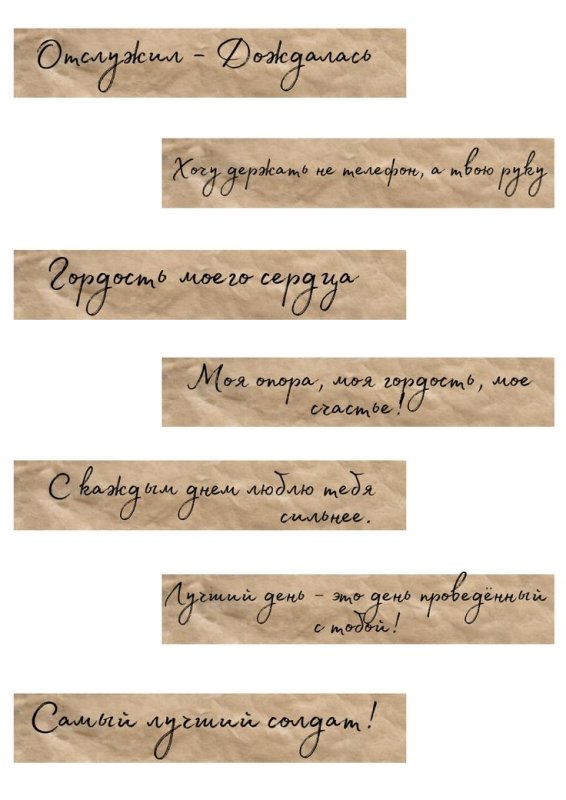 Отслужил - Дождалась
Хочу держать не телефон, а твою руку
Гордость моего сердца
Моя опора, моя гордость, мое
счастье!
С каждым днем люблю тебя
сильнее.
Лучший день - это день проведённый
с тобой!
Самый лучший солдат!